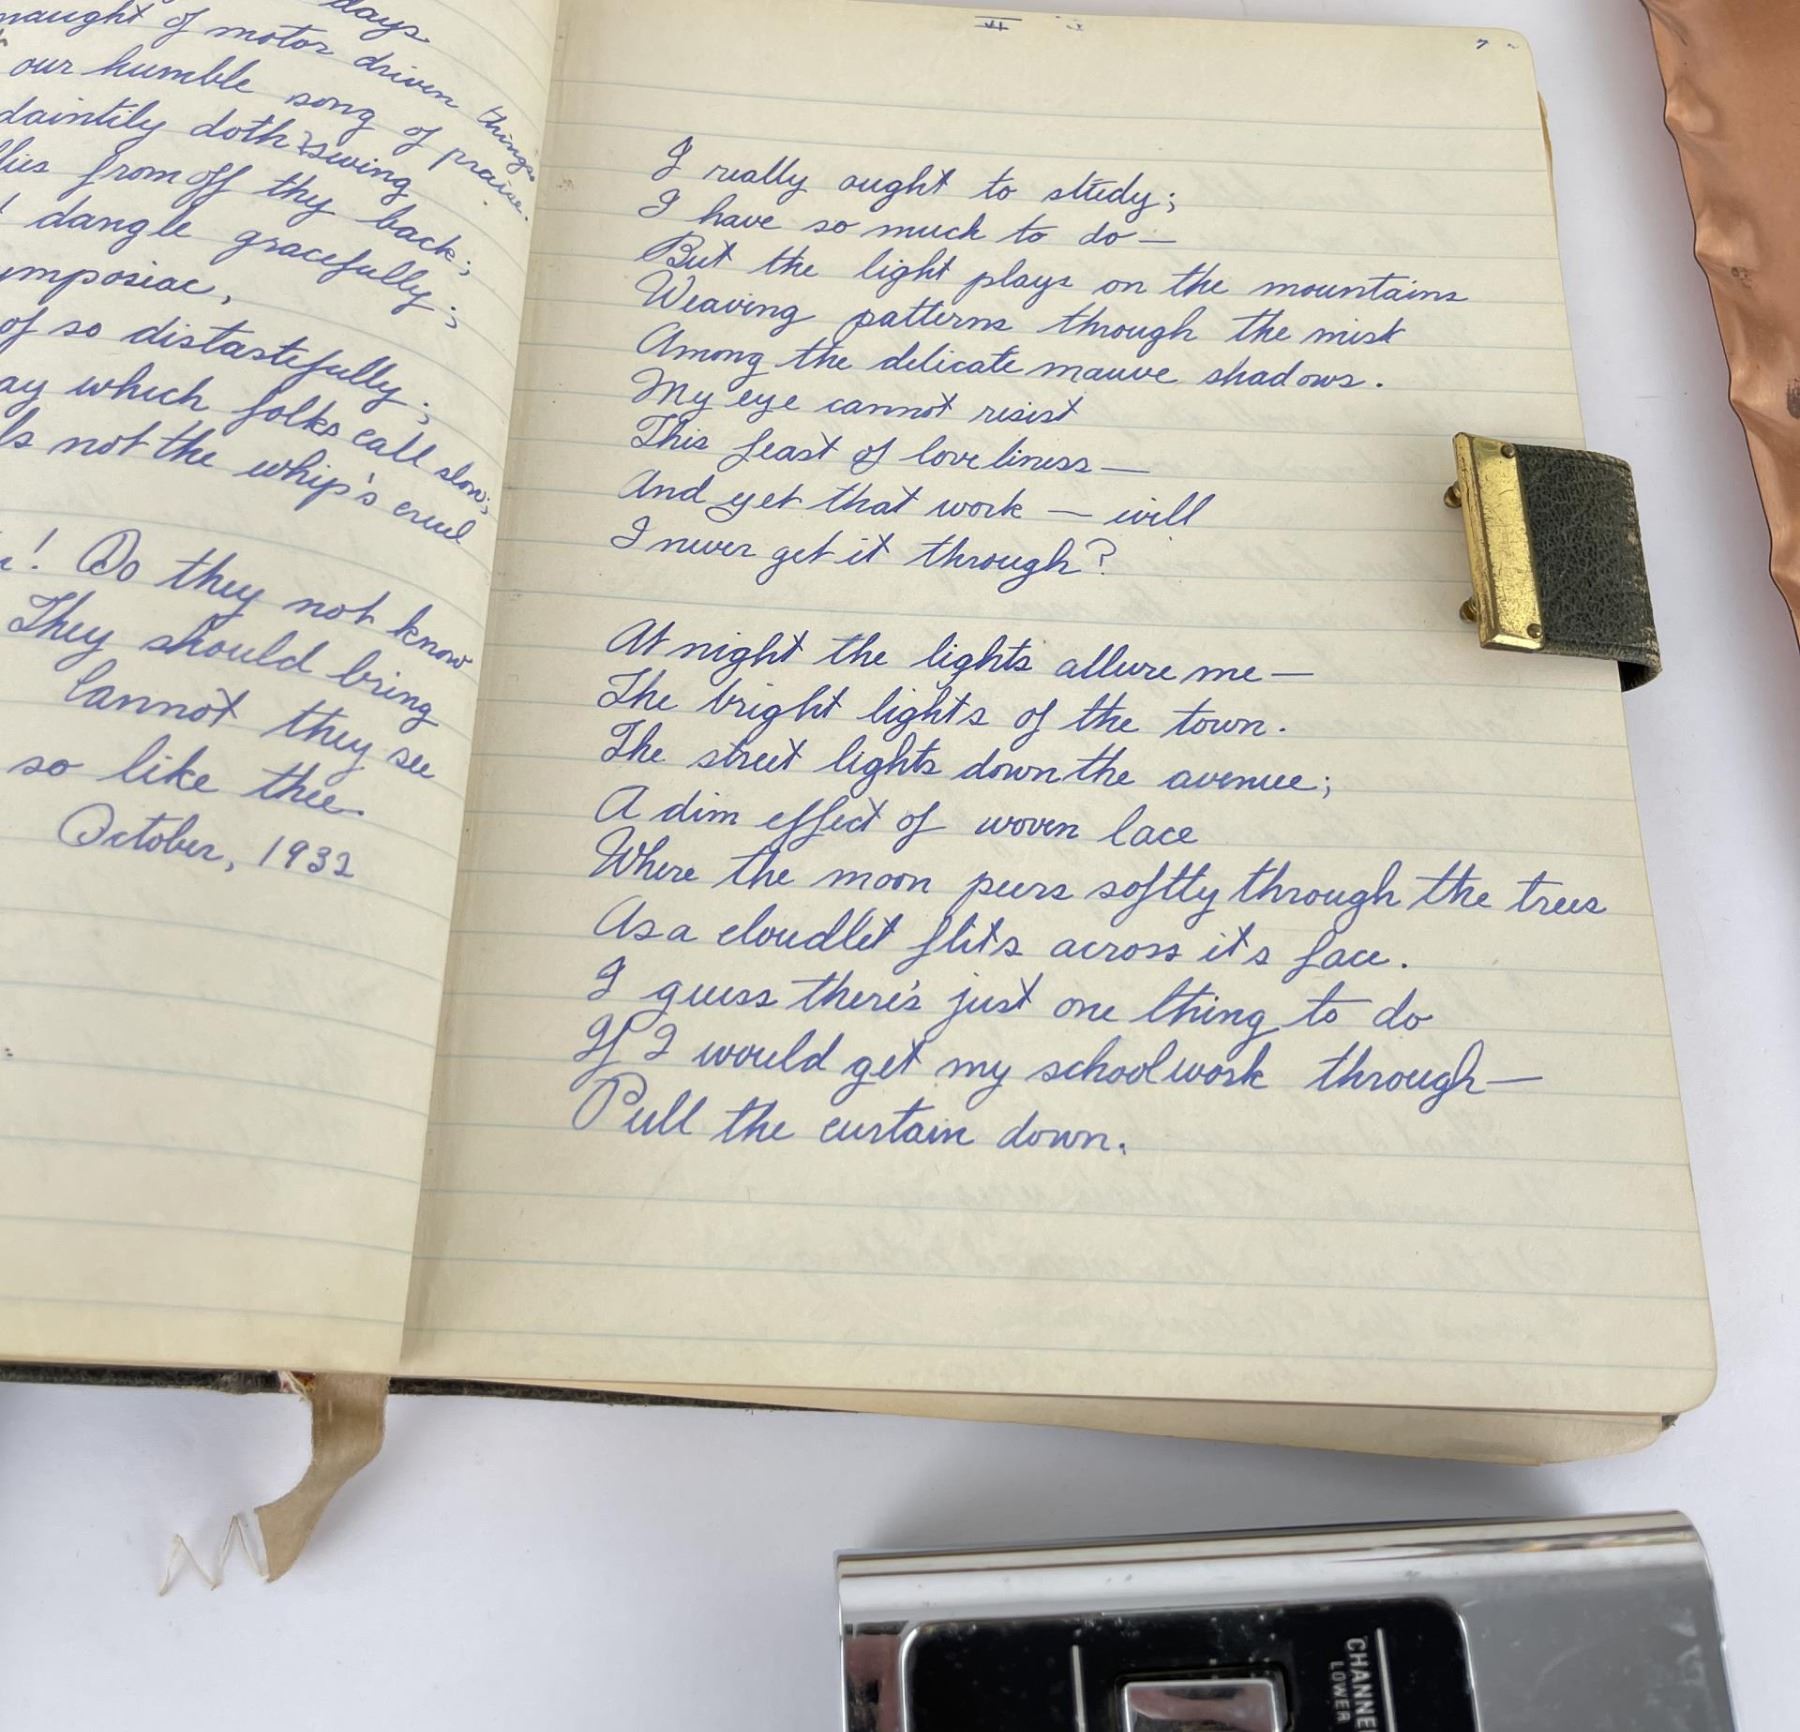 days
naught of motor driven things
our humble song of praise.
daintily doth swing
flies from off thy back;
dangle gracefully;
of so distastefully;
which folks call slow;
not the whip's cruel
! Do they not know
They should bring
Cannot they see
so like thee.
October, 1932
I really ought to study;
I have so much to do—
But the light plays on the mountains
Weaving patterns through the mist
Among the delicate mauve shadows.
My eye cannot resist
This feast of loveliness—
And yet that work — will
I never get it through?
At night the lights allure me—
The bright lights of the town.
The street lights down the avenue;
A dim effect of woven lace
Where the moon peers softly through the trees
As a cloudlet flits across it's face.
I guess there's just one thing to do
If I would get my schoolwork through—
Pull the curtain down.
CHANNE
LOWER